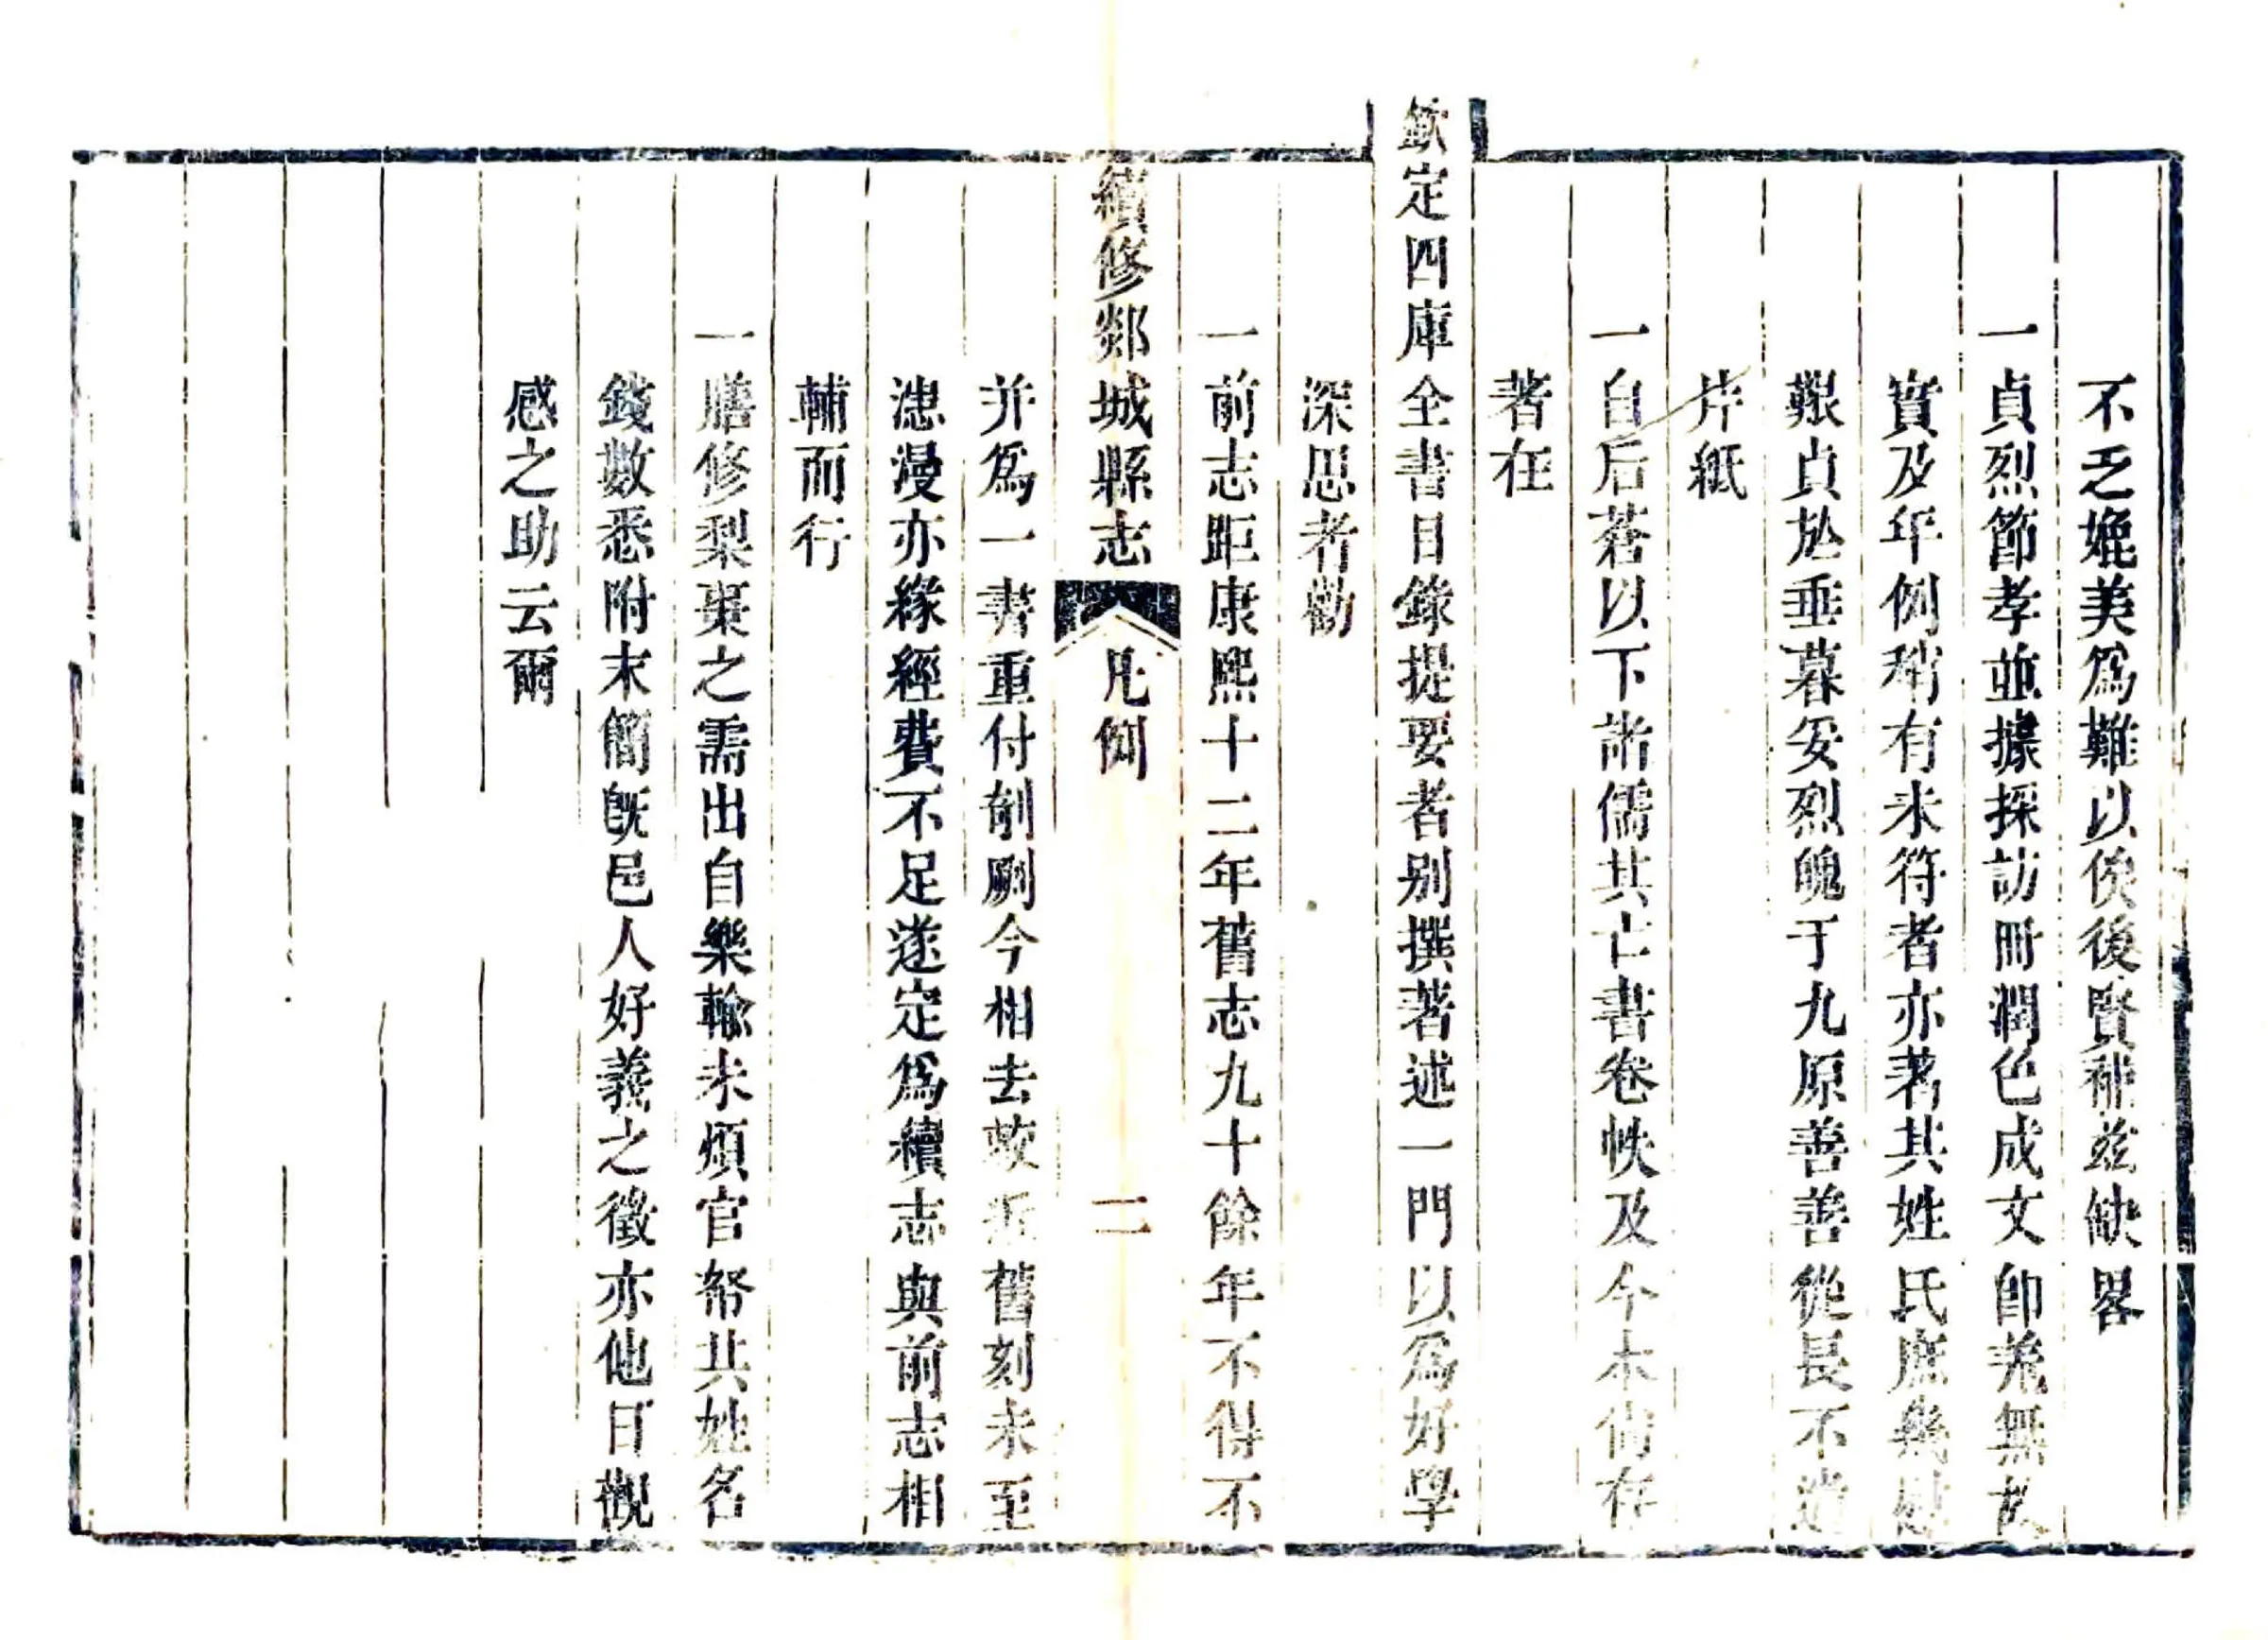 不乏媲美爲難以俟後賢補兹缺畧
一貞烈節孝並據採訪冊潤色成文卽羌無故
實及年例稍有未符者亦著其姓氏庶幾慰
艱貞於垂暮妥烈魄于九原善善從長不遺
片紙
一自后蒼以下諸儒其亡書卷帙及今本尙存
著在
欽定四庫全書目錄提要者别撰著述一門以爲好學
深思者勸
一前志距康熙十二年舊志九十餘年不得不
續修郯城縣志 凡例 二
并爲一書重付剞劂今相去較近舊刻未至
漶漫亦緣經費不足遂定爲續志與前志相
輔而行
一膳修梨棗之需出自樂輸未煩官帑共姓名
錢數悉附末簡旣邑人好義之徵亦他日觀
感之助云爾